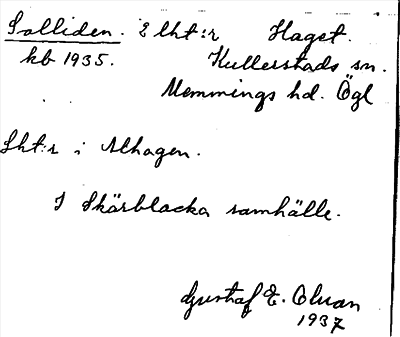 Solliden. 2 lht:r Haget.
kb 1935. Kullerstads sn.
Memmings hd. Ögl
Lht:r i Alhagen.
I Skärblacka samhälle.
Gustaf E. Olsson
1937